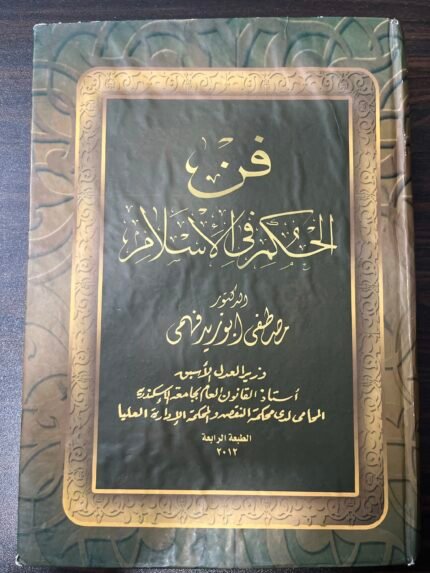 فن
الحكم في الإسلام
الدكتور
مصطفى أبو زيد فهمي
وزير العدل الأسبق
أستاذ القانون العام بجامعة الإسكندرية
المحامى لدى محكمة النقض والمحكمة الإدارية العليا
الطبعة الرابعة
٢٠١٢